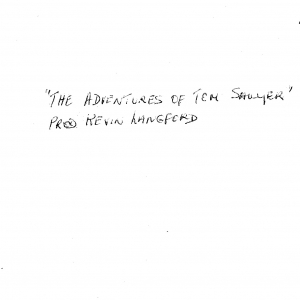 "THE ADVENTURES OF TOM SAWYER"
PRO KEVIN LANGFORD